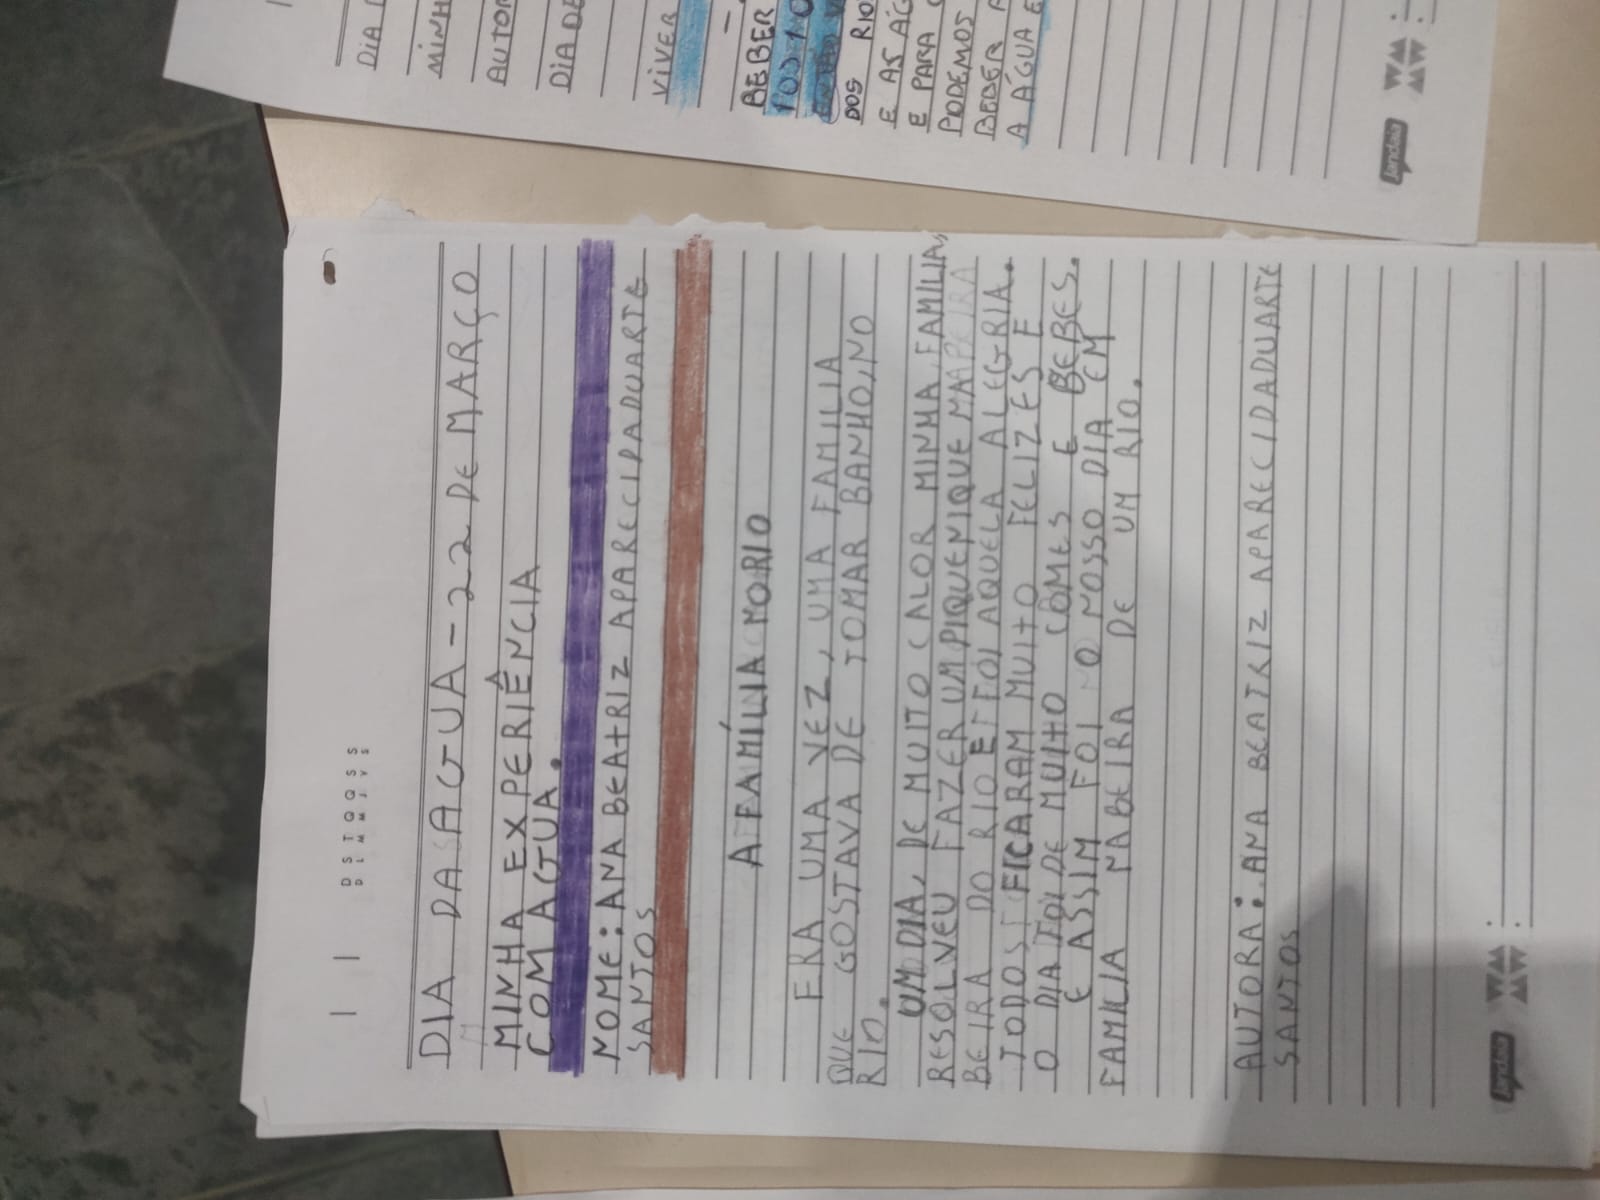 DIA D
MINH
AUTOR
DIA DE
VIVER
BEBER
DOS RIO
E AS ÁG
E PARA
PODEMOS
BEBER A
A ÁGUA E
jandaia
D S T Q Q S S
D L M M J V S
DIA DA AGUA - 22 DE MARÇO
MINHA EXPERIÊNCIA
COM AGUA.
NOME: ANA BEATRIZ APARECIDADUARTE
SANTOS
A FAMÍLIA NO RIO
ERA UMA VEZ, UMA FAMILIA
QUE GOSTAVA DE TOMAR BANHO, NO
RIO.
UM DIA, DE MUITO CALOR MINHA FAMILIA,
RESOLVEU FAZER UM PIQUENIQUE NA
BEIRA DO RIO E FOI AQUELA ALEGRIA.
TODOS FICARAM MUITO FELIZES E
O DIA FOI DE MUIHO COMES E BEBES.
E ASSIM FOI O NOSSO DIA EM
FAMILIA NABEIRA DE UM RIO.
AUTORA: ANA BEATRIZ APARECIDADUARTE
SANTOS
jandaia